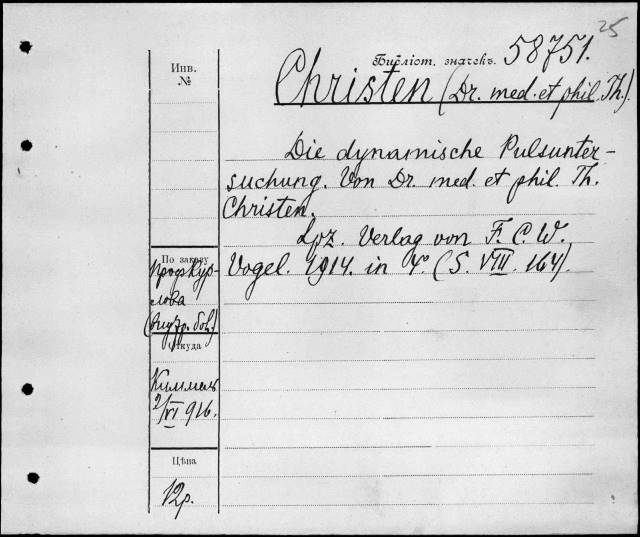 25
Библіот. значекъ. 58751.
Инв.
№
Christen (Dr. med. et phil. Th.)
Die dynamische Pulsunter-
suchung. Von Dr. med. et phil. Th.
Christen.
Lpz. Verlag von F. C. W.
Vogel. 1914. in 4°. (S. VIII. 164).
По заказу
Проф. Кур-
лова
(внутр. бол.)
Откуда
Киммель
2/VI 916.
Цѣна
12р.